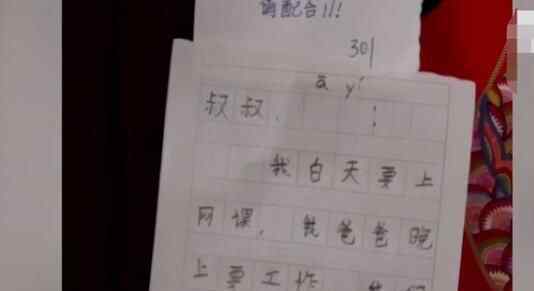 请配合!!!
301
ā yí
叔叔、!
我白天要上
网课,我爸爸晚
上要工作